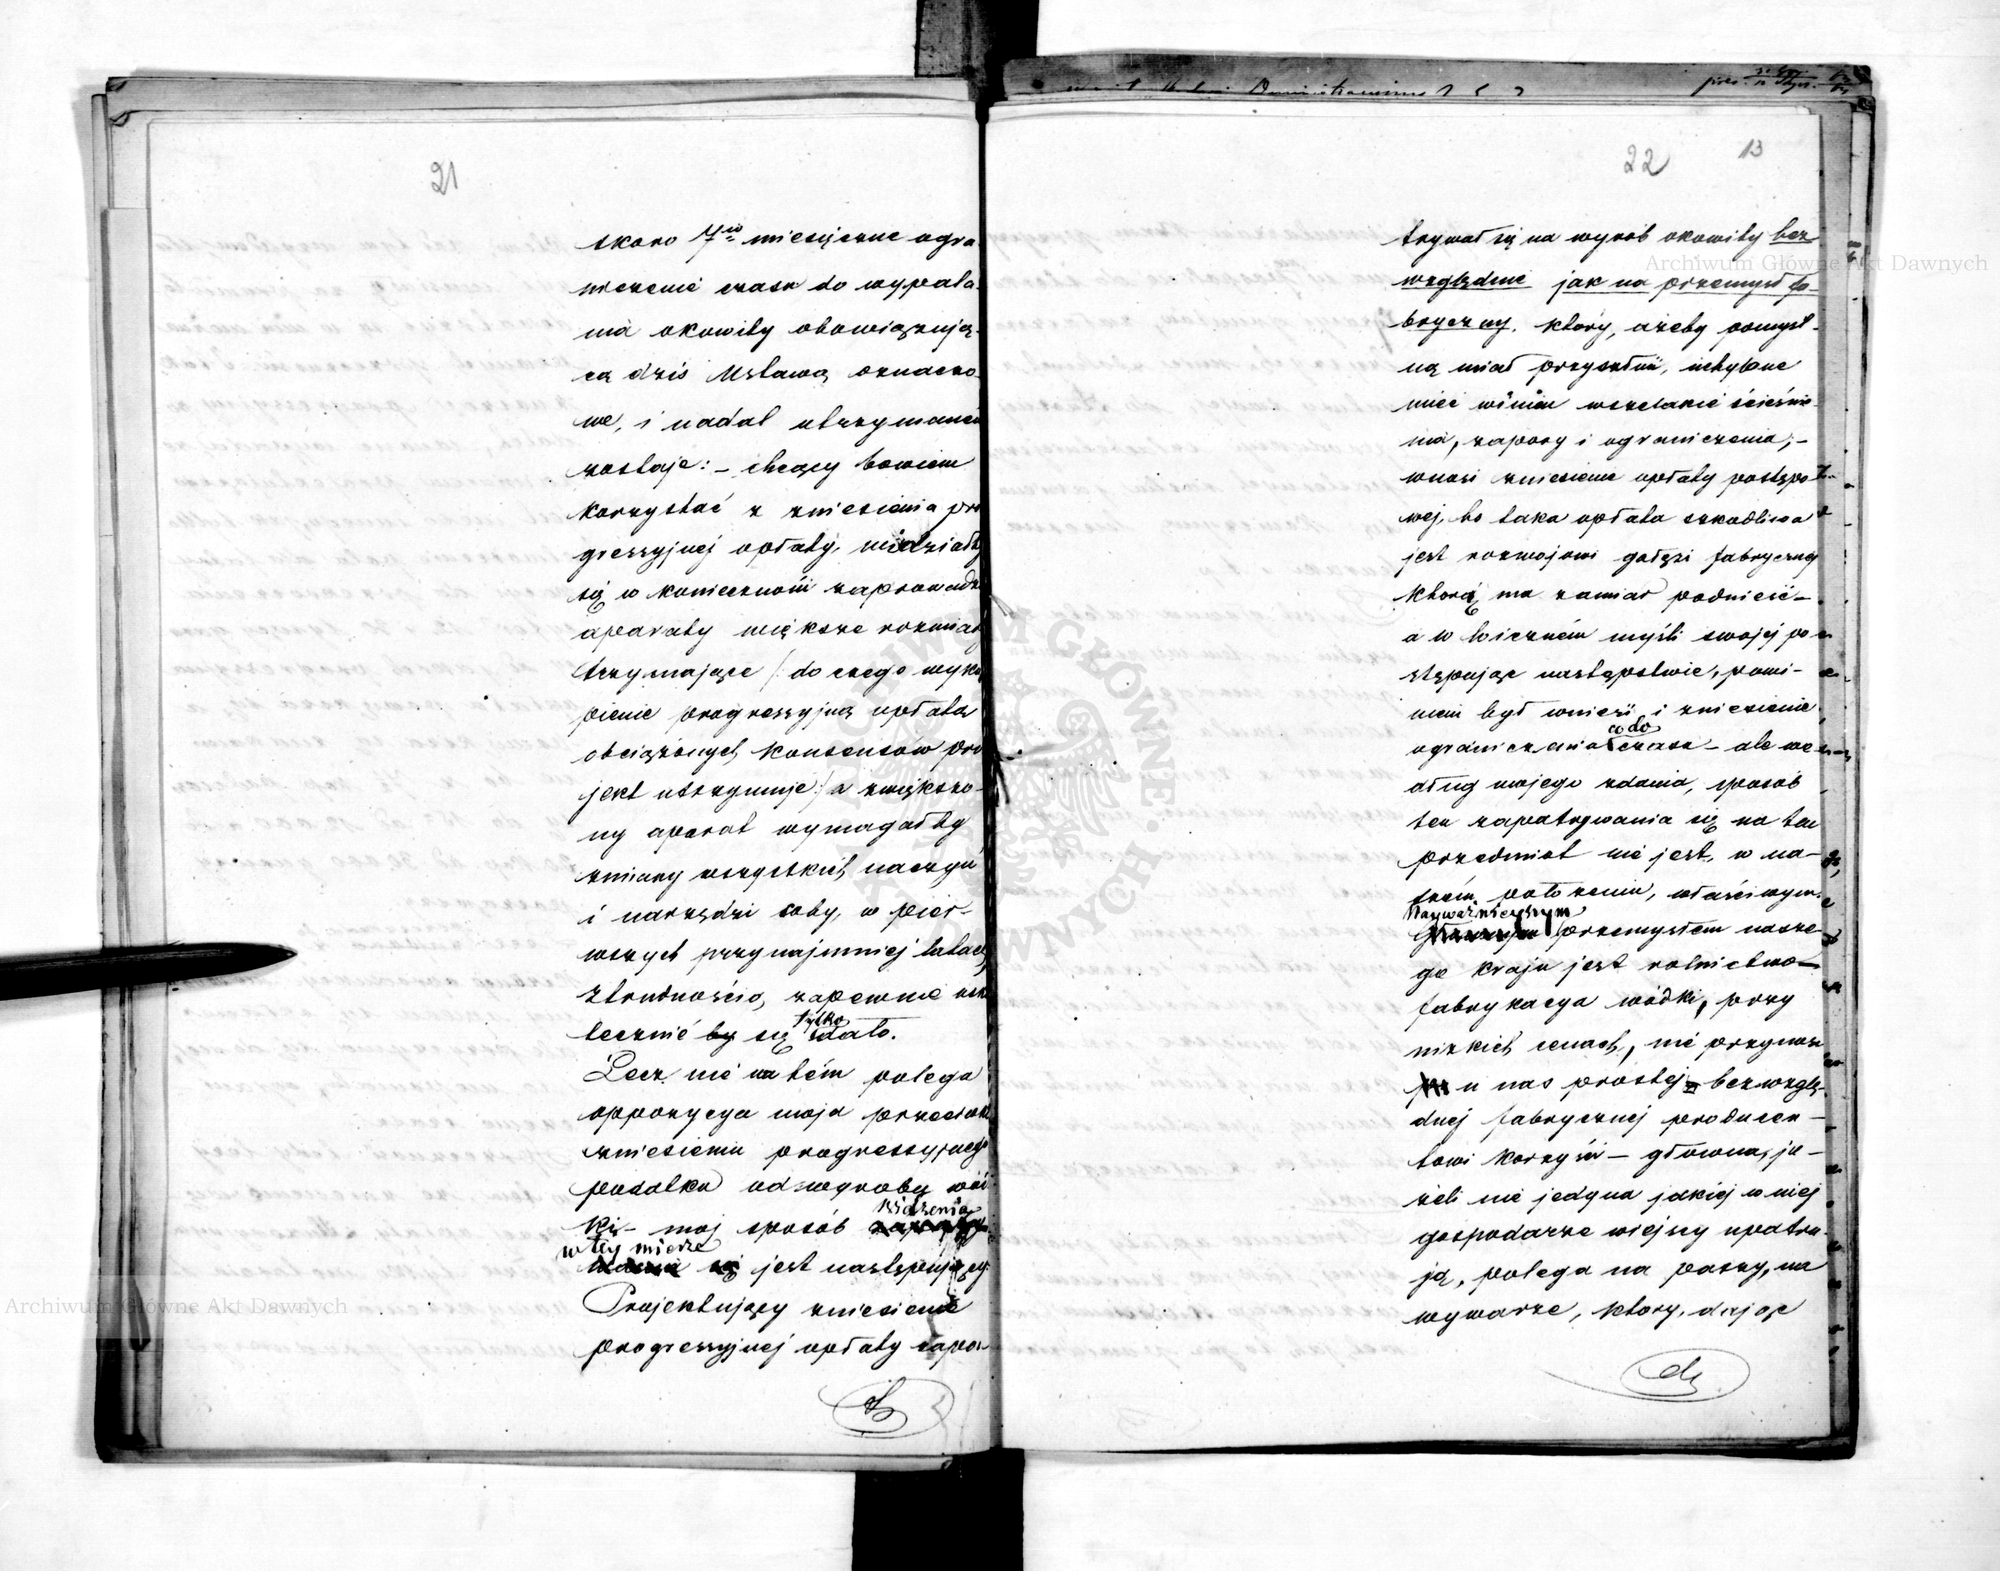 21
skoro 7io miesięczne ogra-
niczenie czasu do wypala-
nia okowity obowiązują-
cą dziś Ustawą oznaczo-
ne, i nadal utrzymanem
zostaje: – chcący bowiem
korzystać z zniesienia pro
gressyjnej opłaty, widziałby
się w konieczności zaprowadz
aparaty większe rozmiary
trzymające /: do czego wyku
pienie progressyjną opłatą
obciążonych konsensów pro
jekt utrzymuje :/ a zwiększo-
ny aparat wymagałby
zmiany wszystkich naczyń
i narzędzi coby, w pier-
wszych przynajmniej latach
z trudnością, zapewne usku
tecznić by się tylko dało.
Lecz nie na tém polega
oppozycya moja przeciwko
zniesieniu progressyjnego
podatku od wyrobu wód
ki – moj sposób widzenia
w tey mierze
jest następujący:
Projektujący zniesienie
progressyjnej opłaty zapa-
22
13
trywał się na wyrób okowity bez-
względnie jak na przemysł fa-
bryczny, który, ażeby pomyśl-
ną miał przyszłość, uchylone
mieć winien wszelakie ścieśnie-
nia, zapory i ograniczenia; –
wnosi zniesienie opłaty postępo-
wej, bo taka opłata szkodliwa
jest rozwojowi gałęzi fabrycznej
którą ma zamiar podnieść –
a w logicznem myśli swojej po-
stępując następstwie, powi-
nien był wnieść i zniesienie
ograniczenia co do czasu – ale we-
dług mojego zdania, sposób
ten zapatrywania się na ten
przedmiot nie jest, w na-
szém położeniu, właściwym.
Najważniejszym
przemysłem nasze-
go kraju jest rolnictwo –
fabrykacya wódki, przy
nizkich cenach, nie przynosi
u nas prostej bezwzglę-
dnej fabrycznej producen-
towi korzyści – główna, je-
żeli nie jedyna jakiej w niej
gospodarze wiejscy upatru-
ją, polega na paszy, na
wywarze, który, dając
Archiwum Główne Akt Dawnych
Archiwum Główne Akt Dawnych
ARCHIWUM GŁÓWNE AKT DAWNYCH